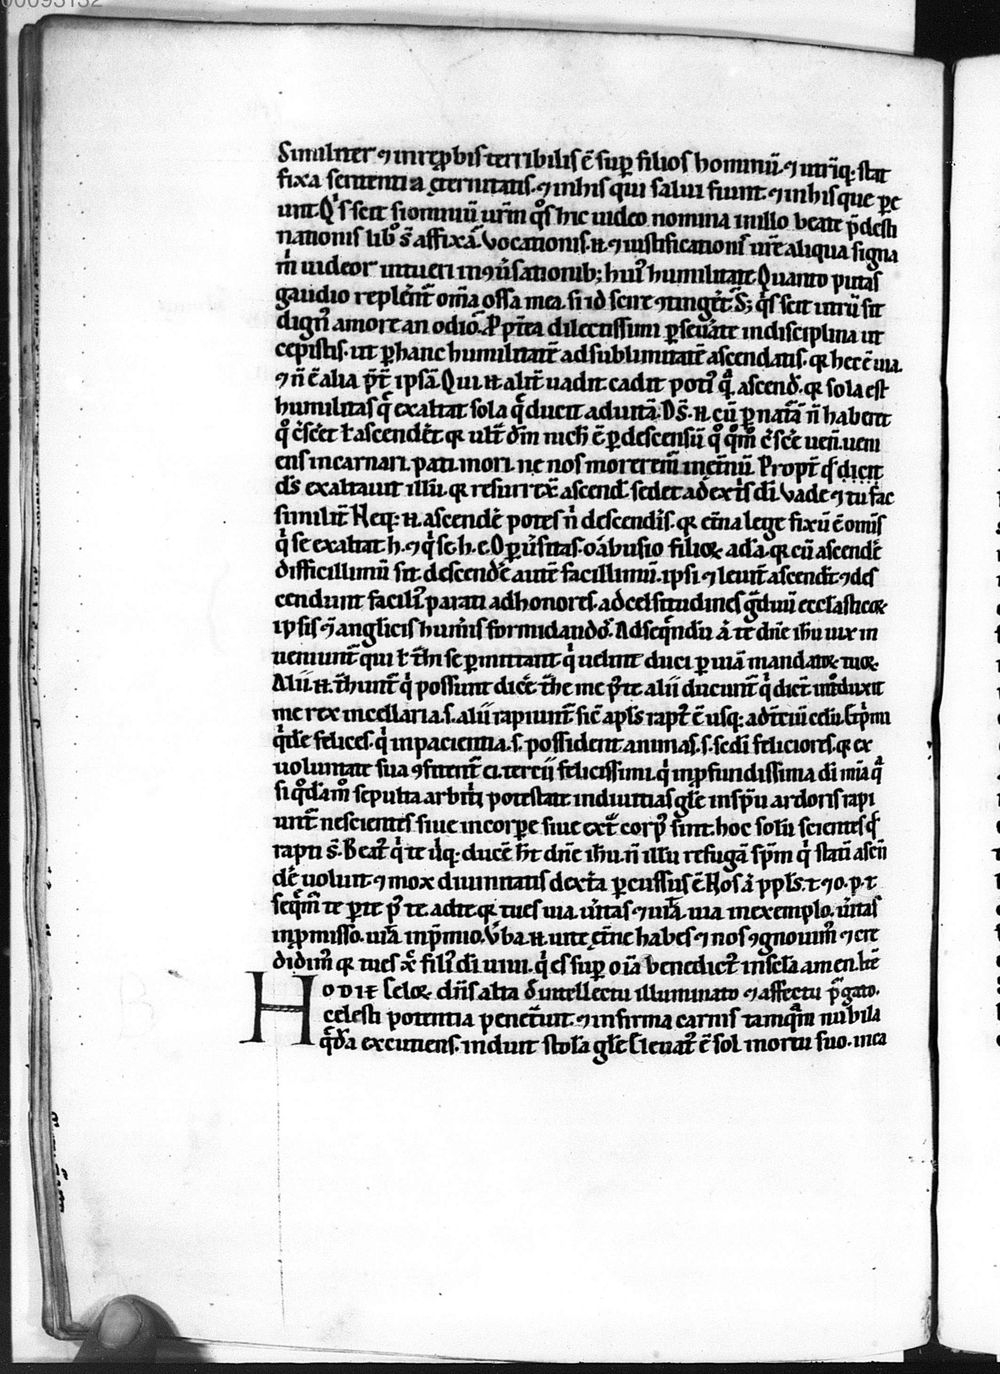 00093132
Similiter ⁊ in rep̱bis terribilis ē sup̱ filios hominū. ⁊ utriq; stat
fixa sententia ęternitatis. ⁊ in his qui salui fiunt. ⁊ in his que pe
unt. Qͥs scit si omniū ur̄m qͦs hic uideo nomina in illo beate p̄desti
nationis libͦ s̄ affixa. Vocationis. n. ⁊ iustificationis ur̄e aliqua signa
m̄ uideor intueri in ꝯuersationib; huiꝰ humilitatē. Quanto putas
gaudio replēt̄ om̄a ossa mea. si id scire ꝯtingēt. S; qͥs scit utrū sit
dignꝰ amore an odio. P̱pt̄a dilectissimi p̱seuāte in disciplina ut
cepistis. ut p̱ hanc humilitatē ad sublimitatē ascendatis. qꝛ hec ē uia.
⁊ n̄ ē alia p̄t ipsā. Qui. n. alit̄ uadit cadit potiꝰ q̄ ascend̄. qꝛ sola est
humilitas q̄ exaltat sola q̄ ducit ad uitā. D̄s. n. cū p̱ natā n̄ haberet
qͦ c̄scēt ł ascendēt qꝛ ult̄ d̄m nich̄ ē p̱ descensū qͦ qͦm c̄scēt uen̄. ueni
ens incarnari. pati. mori. ne nos morerem̄ in et̄nū. Propt̄ qd̄ dicit
d̄s exaltauit illū. qꝛ resurrex̄ ascend̄. sedet a dext̄is d̄i. Vade ⁊ tu fac
similit̄. Neq; n. ascend̄e potes n̄ descend̄is. qꝛ et̄na lege fixū ē om̄is
qͥ se exaltat h. ⁊ qͥ se h. e. O p̱u̓sitas. o abusio filioꝝ adā. qꝛ cū ascend̄e
difficillimū sit. descend̄e autē facillimū. ipsi ⁊ leuit̄ ascendt̄ ⁊ des
cendunt faciliꝰ parati ad honores. ad celsitudines ḡduū eccłasticoꝝ
ipsis ⁊ anglicis hum̄is formidandos. Ad seqn̄du a̓ te dn̄e ih̄u uix in
ueniunt̄ qui ł t̄hi se p̱mittant. qͥ uelint duci p̱ uiā mandatoꝝ tuoꝝ.
Alii. n. t̄hunt̄ qͥ possunt dic̄e t̄he me p̄ te alii ducunt̄ qͥ dict̄ int̄duxit
me rex in cellaria. s. alii rapiunt̄ sic̄ apl̄s rapt̄ ē usq; ad t̄ciū celū. Et p̄mi
qͥdē felices. qͥ in paciencia. s. possident animas. s. sedi feliciores. qꝛ ex
uoluntate sua ꝯfitent̄ ei. tercii felicissimi. qͥ in p̱fundissima d̄i mīa qͣ
si qͦdāmͦ sepulta arbitͥi potestate in diuitias gl̄e in sp̄u ardoris rapi
unt̄ nescientes siue in corpe siue ext̄ corpꝰ sint. hoc solū scientes qd̄
rapti s̄. Beatꝰ qͥ te u̓q; ducē h̄t dn̄e ih̄u. n̄ illū refugā sp̄m qͥ statī ascn̄
d̄e uoluit ⁊ mox diuinitatis dext̄a p̱cussus ē. Nos a̓ pp̄ls. t. ⁊ o. p. t.
seqm̄ te p̱ te p̄ te ad te. qꝛ tu es uia. u̓itas ⁊ uita. uia in exemplo. u̓itas
in p̱misso. uita in p̄mio. V̓ba. n. uite et̄ne habes ⁊ nos ꝯgnouim̄ ⁊ cre
didim̄ qꝛ tu es xp̄ filiꝰ d̄i uiui. qͥ es sup̱ oīa benedictꝰ in sc̄ła amen.
HODIE celoꝝ dn̄s alta d̓ intellectu illuminato ⁊ affectu p̄gato.
celesti potentia penet̄uit. ⁊ infirma carnis tamqͣm nubila
qͣdā excutiens. induit stolā gl̄e. Eleuatꝰ ē sol in ortu suo. inca